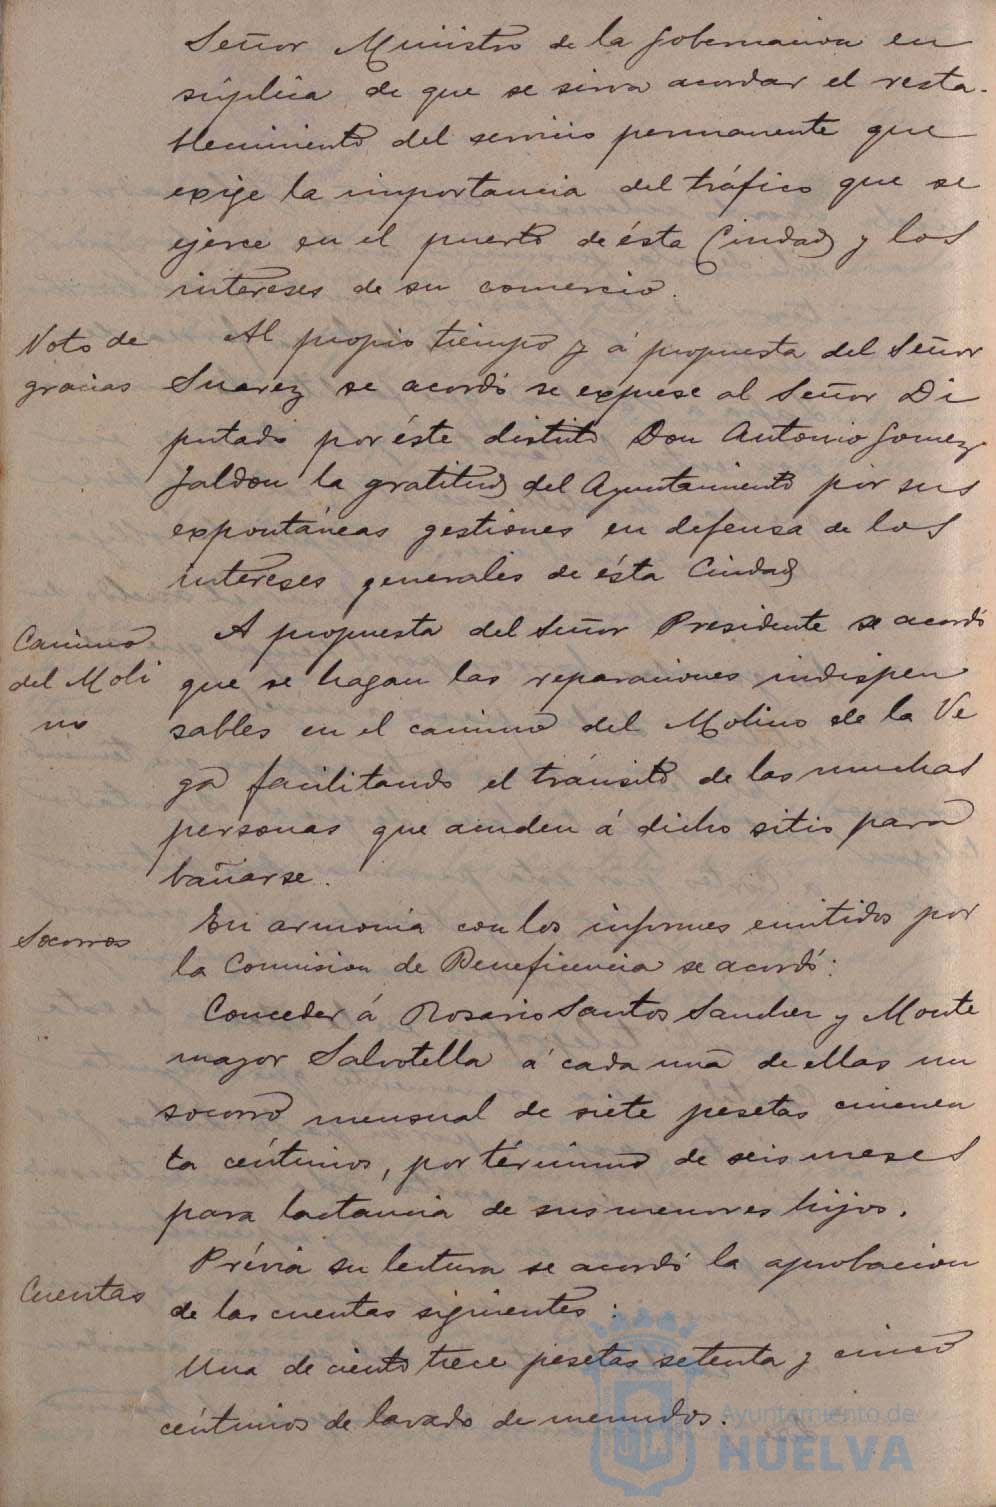 Señor Ministro de la Gobernacion en
súplica de que se sirva acordar el resta-
blecimiento del servicio permanente que
exije la importancia del tráfico que se
ejerce en el puerto de ésta Ciudad y los
intereses de su comercio.
Voto de
gracias
Al propio tiempo y á propuesta del Señor
Suarez se acordó se exprese al Señor Di
putado por éste distrito Don Antonio Gomez
Jaldon la gratitud del Ayuntamiento por sus
expontáneas gestiones en defensa de los
intereses generales de ésta Ciudad
Camino
del Moli
no
A propuesta del Señor Presidente se acordó
que se hagan las reparaciones indispen
sables en el camino del Molino de la Ve
ga facilitando el tránsito de las muchas
personas que acuden á dicho sitio para
bañarse.
Socorros
En armonia con los informes emitidos por
la Comision de Beneficencia se acordó:
Conceder á Rosario Santos Sanchez y Monte
mayor Salvotella á cada una de ellas un
socorro mensual de siete pesetas cincuen
ta céntimos, por término de seis meses
para lactancia de sus menores hijos.
Cuentas
Prévia su lectura se acordó la aprobacion
de las cuentas siguientes:
Una de ciento trece pesetas setenta y cinco
céntimos de lavado de menudos.
Ayuntamiento de
HUELVA